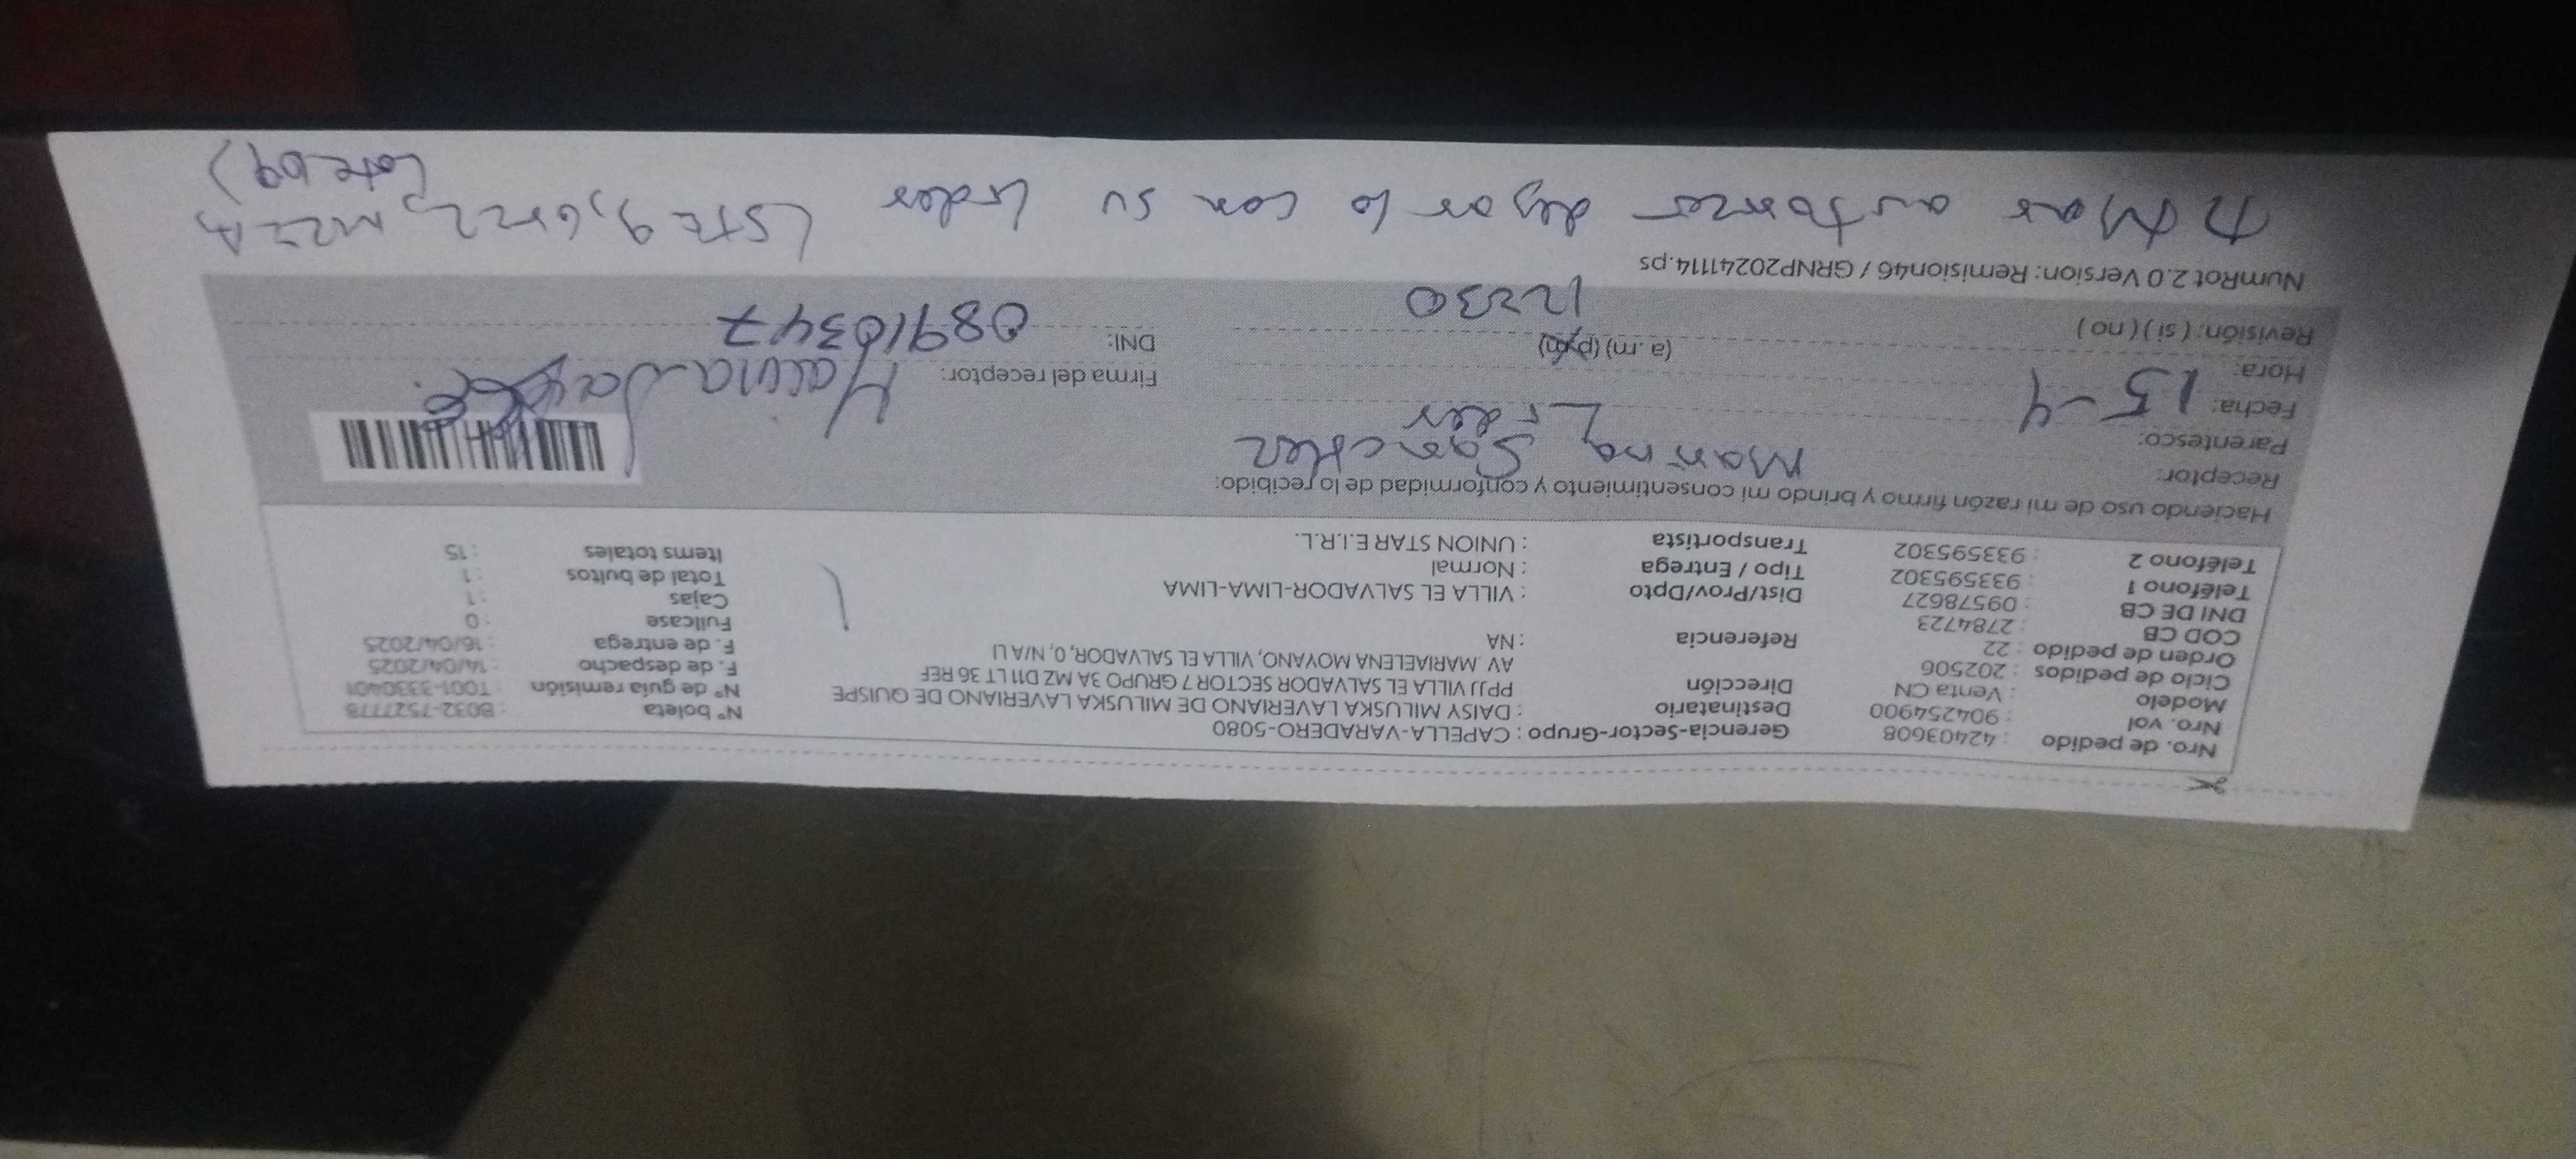 Nro. de pedido : 42403608 Gerencia-Sector-Grupo : CAPELLA-VARADERO-5080
Nro. vol : 904254900 Destinatario : DAISY MILUSKA LAVERIANO DE MILUSKA LAVERIANO DE QUISPE Nº boleta : B032-7527778
Modelo : Venta CN Dirección PPJJ VILLA EL SALVADOR SECTOR 7 GRUPO 3A MZ D11 LT 36 REF Nº de guía remisión : T001-3330401
Ciclo de pedidos : 202506 AV. MARIAELENA MOYANO, VILLA EL SALVADOR, 0, N/A LI F. de despacho : 14/04/2025
Orden de pedido : 22 Referencia : NA F. de entrega : 16/04/2025
COD CB : 2784723 Fullcase : 0
DNI DE CB : 09578627 Dist/Prov/Dpto : VILLA EL SALVADOR-LIMA-LIMA Cajas : 1
Teléfono 1 : 933595302 Tipo / Entrega : Normal Total de bultos : 1
Teléfono 2 : 933595302 Transportista : UNION STAR E.I.R.L. Items totales : 15
Haciendo uso de mi razón firmo y brindo mi consentimiento y conformidad de lo recibido:
Receptor: Marina Sanchez
Parentesco: Lider
Fecha: 15-4 Firma del receptor: Marina
Hora: (a.m) (p.m) DNI: 08910347
Revisión: ( si ) ( no ) 12:30
NumRot 2.0 Version: Remision46 / GRNP20241114.ps
autorizo dejar lo con su lider
Lote 09)